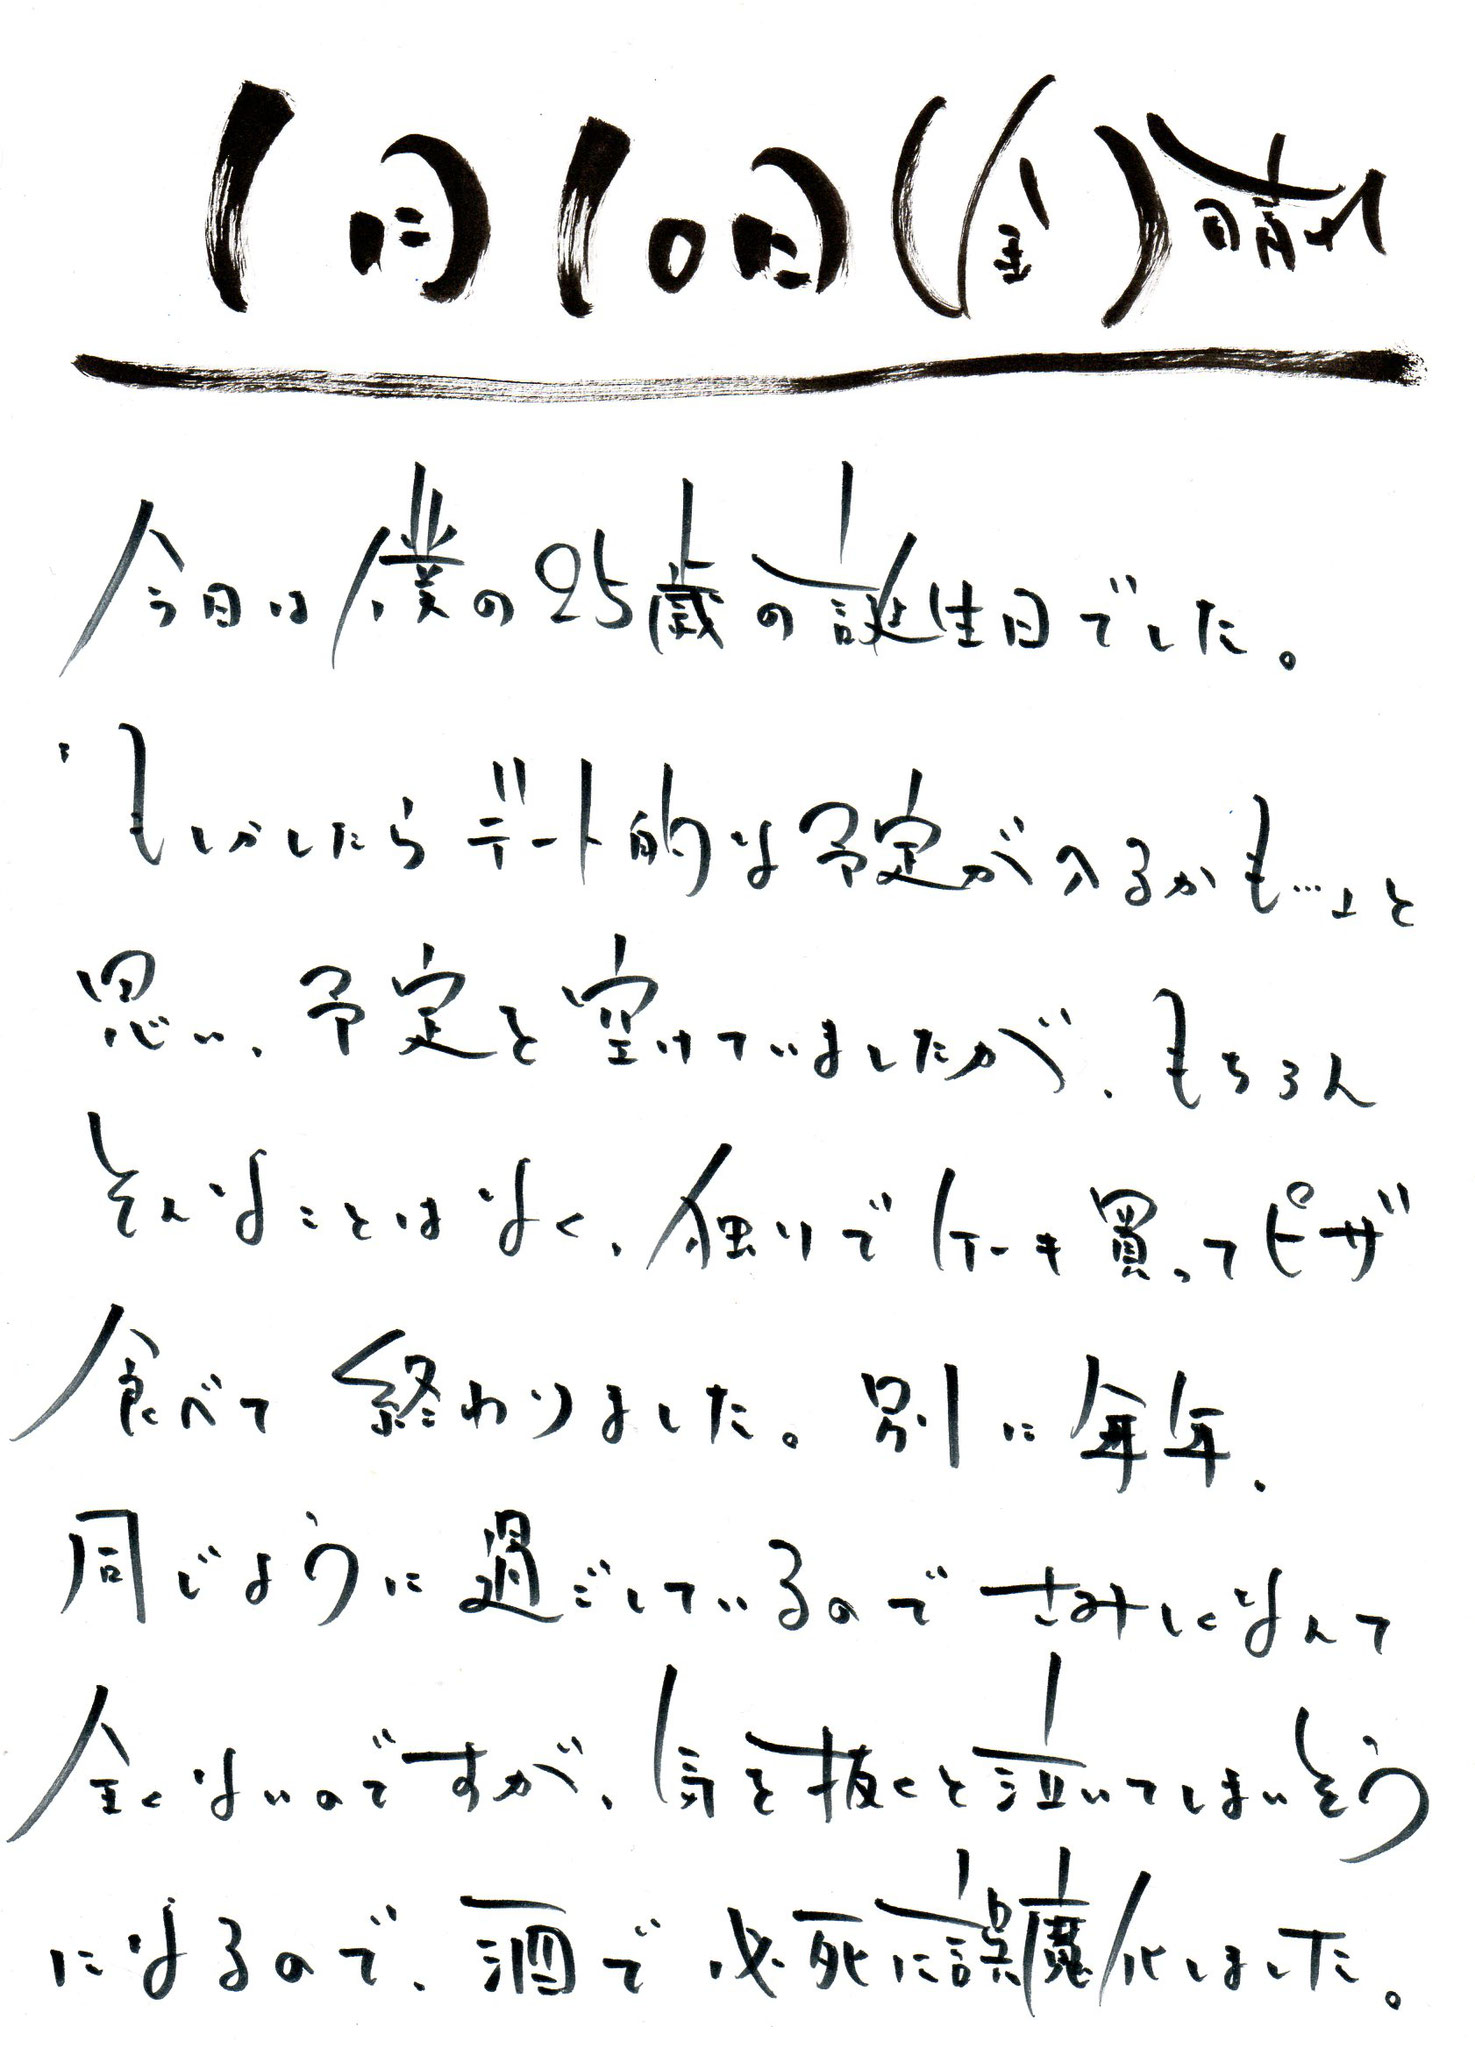 1月10日(金)晴れ
今日は僕の25歳の誕生日でした。
「もしかしたらデート的な予定が入るかも…」と
思い、予定を空けていましたが、もちろん
そんなことはなく、独りでケーキ買ってピザ
食べて終わりました。別に毎年、
同じように過ごしているのでさみしくなんて
全くないのですが、気を抜くと泣いてしまいそう
になるので、酒で必死に誤魔化しました。